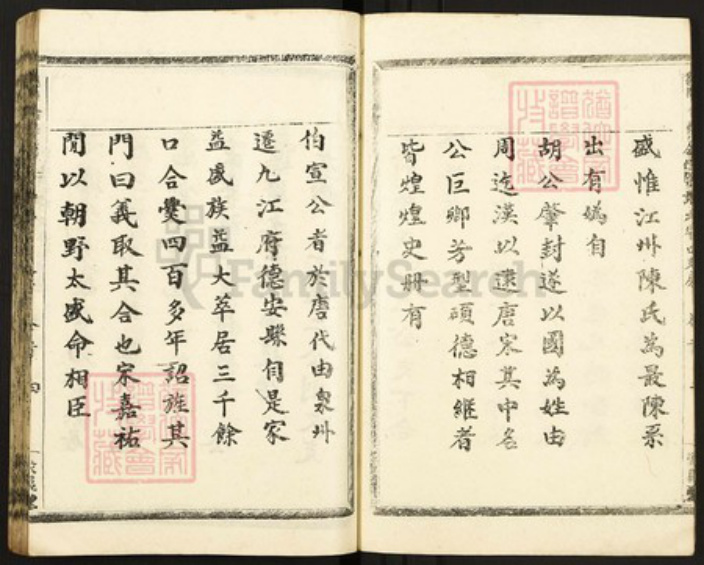 盛惟江州陳氏為最陳系
出有媯自
胡公肇封遂以國為姓由
周迄漢以逮唐宋其中名
公巨卿芳型碩德相維者
皆煌煌史冊有
伯宣公者於唐代由泉州
遷九江府德安縣自是家
益盛族益大萃居三千餘
口合爨四百多年詔旌其
門曰義取其合也宋嘉祐
間以朝野太盛命相臣
FamilySearch